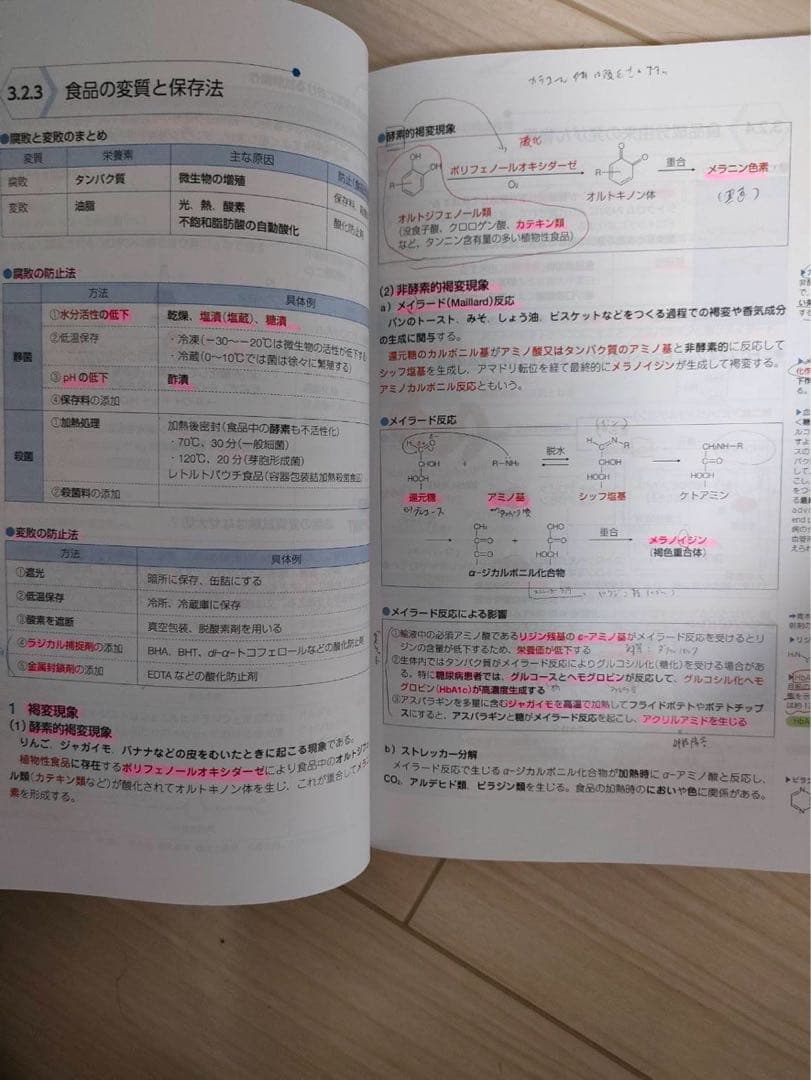 3.2.3 食品の変質と保存法
●腐敗と変敗のまとめ
変質 栄養素 主な原因
腐敗 タンパク質 微生物の増殖 保存料
変敗 油脂 光、熱、酸素
不飽和脂肪酸の自動酸化
●腐敗の防止法
方法 具体例
静菌
①水分活性の低下 乾燥、塩漬(塩蔵)、糖漬
②低温保存 ・冷凍(−30〜−20℃は微生物の活性が低下する
・冷蔵(0〜10℃では菌は徐々に繁殖する)
③pHの低下 酢漬
④保存料の添加
殺菌
①加熱処理 加熱後密封(食品中の酵素も不活性化)
・70℃、30分(一般細菌)
・120℃、20分(芽胞形成菌)
レトルトパウチ食品(容器包装詰加熱殺菌食品)
②殺菌料の添加
●変敗の防止法
方法 具体例
①遮光 暗所に保存、缶詰にする
②低温保存 冷所、冷蔵庫に保存
③酸素を遮断 真空包装、脱酸素剤を用いる
④ラジカル捕捉剤の添加 BHA、BHT、dl-α-トコフェロールなどの酸化防止剤
⑤金属封鎖剤の添加 EDTAなどの酸化防止剤
1 褐変現象
(1) 酵素的褐変現象
りんご、ジャガイモ、バナナなどの皮をむいたときに起こる現象である。
植物性食品に存在するポリフェノールオキシダーゼにより食品中のオルトジフェ
ル類(カテキン類など)が酸化されてオルトキノン体を生じ、これが重合してメラ
素を形成する。
●酵素的褐変現象
酸化
OH
OH
R
ポリフェノールオキシダーゼ
O₂
O
O
R
重合
メラニン色素
オルトキノン体
オルトジフェノール類
(没食子酸、クロロゲン酸、カテキン類
など、タンニン含有量の多い植物性食品)
(2) 非酵素的褐変現象
a) メイラード(Maillard)反応
パンのトースト、みそ、しょう油、ビスケットなどをつくる過程での褐変や香気成分
の生成に関与する。
還元糖のカルボニル基がアミノ酸又はタンパク質のアミノ基と非酵素的に反応して
シッフ塩基を生成し、アマドリ転位を経て最終的にメラノイジンが生成して褐変する。
アミノカルボニル反応ともいう。
●メイラード反応
CHOH
HOCH
+ R−NH₂
脱水
CHOH
HOCH
CH₂NH−R
C=O
HOCH
還元糖 アミノ基 シッフ塩基 ケトアミン
CH₃
C=O
C=O
CHO
C=O
HOCH
重合
メラノイジン
(褐色重合体)
α-ジカルボニル化合物
●メイラード反応による影響
①輸液中の必須アミノ酸であるリジン残基のε-アミノ基がメイラード反応を受けるとリ
ジンの含量が低下するため、栄養価が低下する
②生体内ではタンパク質がメイラード反応によりグリコシル化(糖化)を受ける場合があ
る。特に糖尿病患者では、グルコースとヘモグロビンが反応して、グルコシル化ヘモ
グロビン(HbA1c)が高濃度生成する
③アスパラギンを多量に含むジャガイモを高温で加熱してフライドポテトやポテトチップ
スにすると、アスパラギンと糖がメイラード反応を起こし、アクリルアミドを生じる
b) ストレッカー分解
メイラード反応で生じるα-ジカルボニル化合物が加熱時にα-アミノ酸と反応し、
CO₂、アルデヒド類、ピラジン類を生じる。食品の加熱時のにおいや色に関係がある。